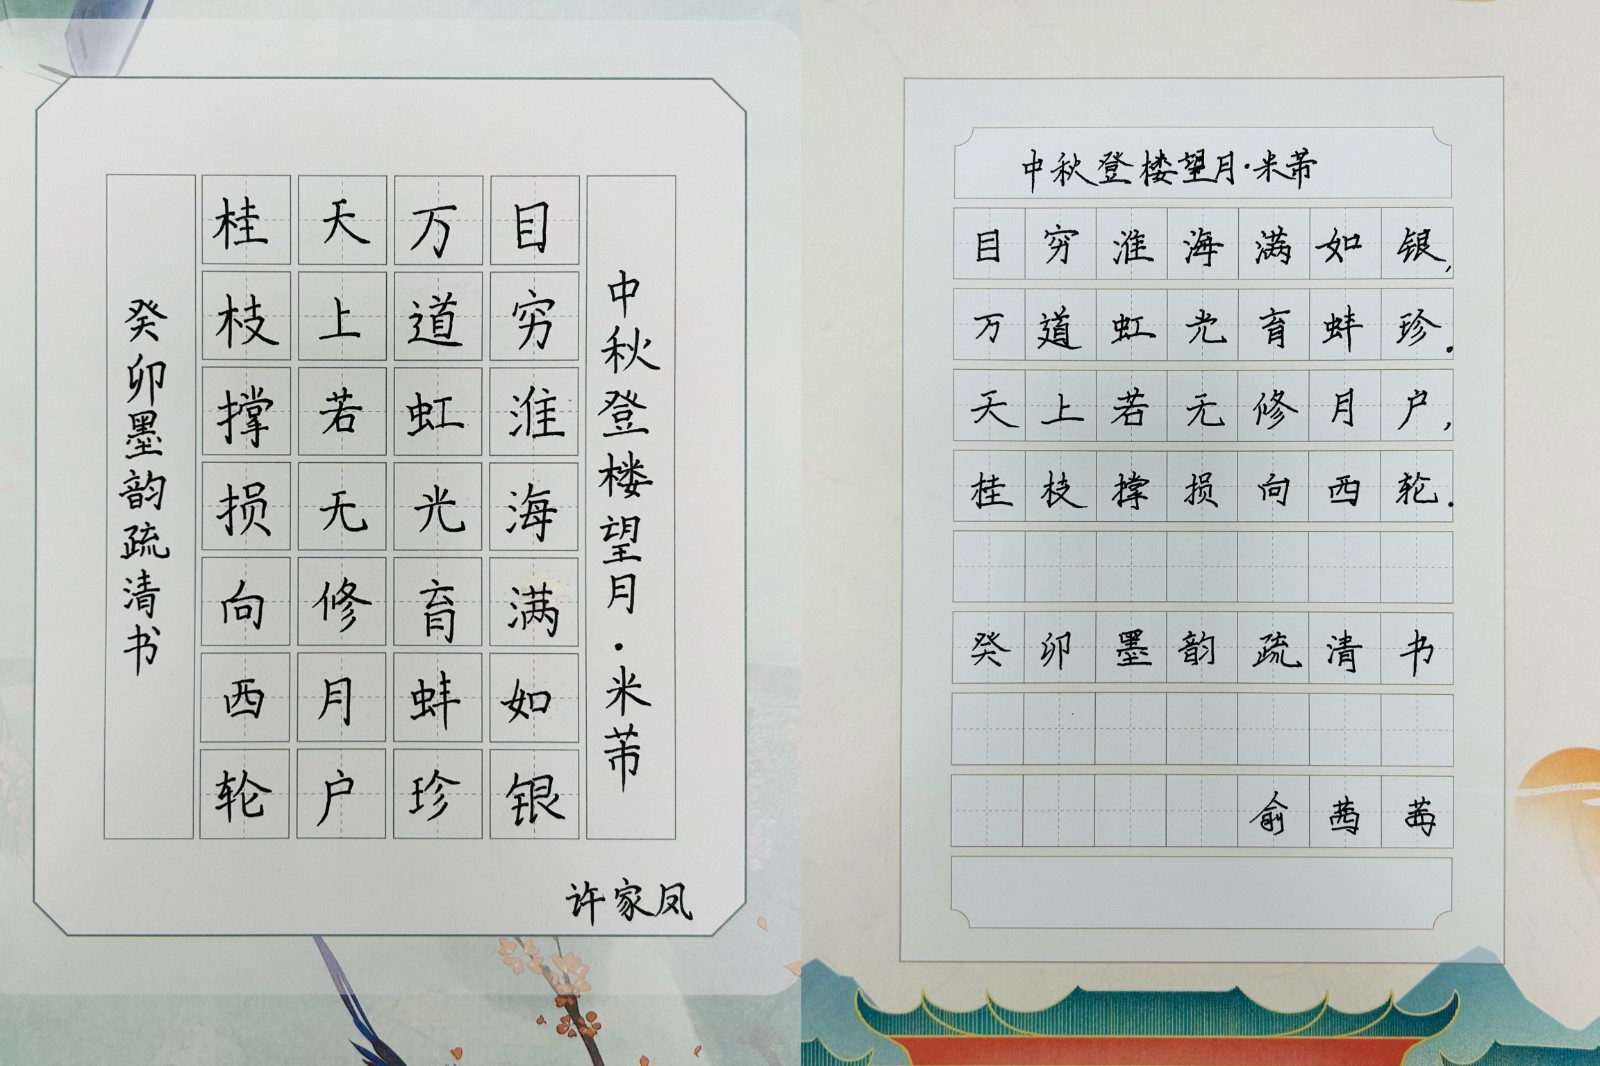 中秋登楼望月·米芾
目穷淮海满如银
万道虹光育蚌珍
天上若无修月户
桂枝撑损向西轮
癸卯墨韵疏清书
许家凤
中秋登楼望月·米芾
目穷淮海满如银,
万道虹光育蚌珍.
天上若无修月户,
桂枝撑损向西轮.
癸卯墨韵疏清书
俞茜茜